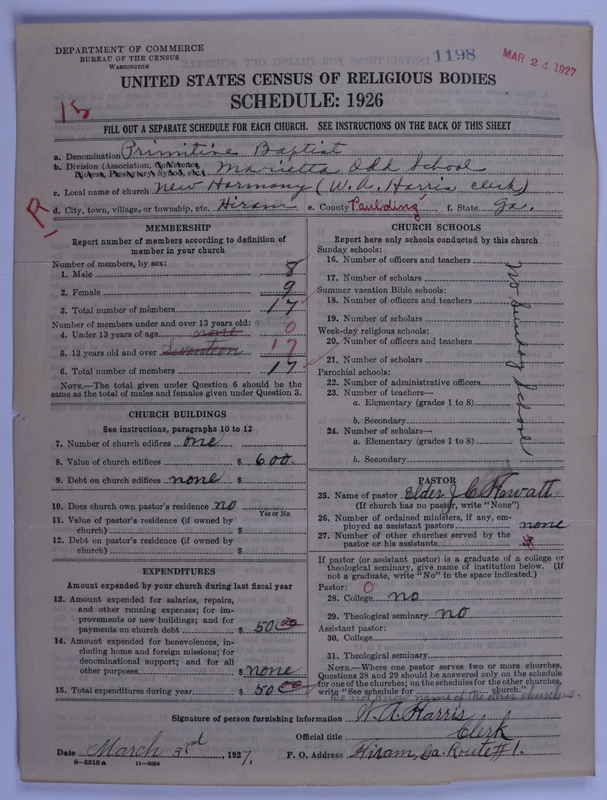 DEPARTMENT OF COMMERCE
BUREAU OF THE CENSUS
WASHINGTON
1198
MAR 24 1927
UNITED STATES CENSUS OF RELIGIOUS BODIES
SCHEDULE: 1926
FILL OUT A SEPARATE SCHEDULE FOR EACH CHURCH. SEE INSTRUCTIONS ON THE BACK OF THIS SHEET
a. Denomination Primitive Baptist
b. Division (Association, Conference, Diocese, Presbytery, Synod, etc.) Marietta Odd School
c. Local name of church New Harmony (W. A. Harris clerk)
d. City, town, village, or township, etc. Hiram e. County Paulding f. State Ga.
R
MEMBERSHIP
Report number of members according to definition of
member in your church
Number of members, by sex:
1. Male 8
2. Female 9
3. Total number of members 17
Number of members under and over 13 years old:
4. Under 13 years of age none 0
5. 13 years old and over Seventeen 17
6. Total number of members 17
NOTE.—The total given under Question 6 should be the
same as the total of males and females given under Question 3.
CHURCH BUILDINGS
See instructions, paragraphs 10 to 12
7. Number of church edifices one
8. Value of church edifices $ 600
9. Debt on church edifices none $
10. Does church own pastor's residence no
Yes or No
11. Value of pastor's residence (if owned by
church) $
12. Debt on pastor's residence (if owned by
church) $
EXPENDITURES
Amount expended by your church during last fiscal year
13. Amount expended for salaries, repairs,
and other running expenses; for im-
provements or new buildings; and for
payments on church debt $ 50 00
14. Amount expended for benevolences, in-
cluding home and foreign missions; for
denominational support; and for all
other purposes $ none
15. Total expenditures during year $ 50 00
CHURCH SCHOOLS
Report here only schools conducted by this church
Sunday schools:
16. Number of officers and teachers
17. Number of scholars
Summer vacation Bible schools:
18. Number of officers and teachers
19. Number of scholars
Week-day religious schools:
20. Number of officers and teachers
21. Number of scholars
Parochial schools:
22. Number of administrative officers
23. Number of teachers—
a. Elementary (grades 1 to 8)
b. Secondary
24. Number of scholars—
a. Elementary (grades 1 to 8)
b. Secondary
No Sunday School
PASTOR
25. Name of pastor Elder J. C. Howatt
(If church has no pastor, write "None")
26. Number of ordained ministers, if any, em-
ployed as assistant pastors none
27. Number of other churches served by the
pastor or his assistants
If pastor (or assistant pastor) is a graduate of a college or
theological seminary, give name of institution below. (If
not a graduate, write "No" in the space indicated.)
Pastor: 0
28. College no
29. Theological seminary no
Assistant pastor:
30. College
31. Theological seminary
NOTE.—Where one pastor serves two or more churches,
Questions 28 and 29 should be answered only on the schedule
for one of the churches; on the schedules for the other churches,
write "See schedule for church."
Do not know name of the other churches.
Signature of person furnishing information W. A. Harris
Official title Clerk
Date March 3rd, 1927. P. O. Address Hiram, Ga. Route # 1.
8—5518a 11—9064